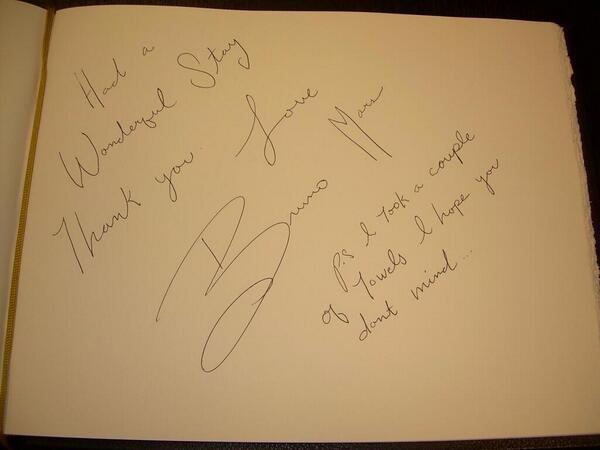 Had a
Wonderful Stay
Thank you. Love
Bruno Mars
P.S I Took a couple
of Towels I hope you
dont mind...